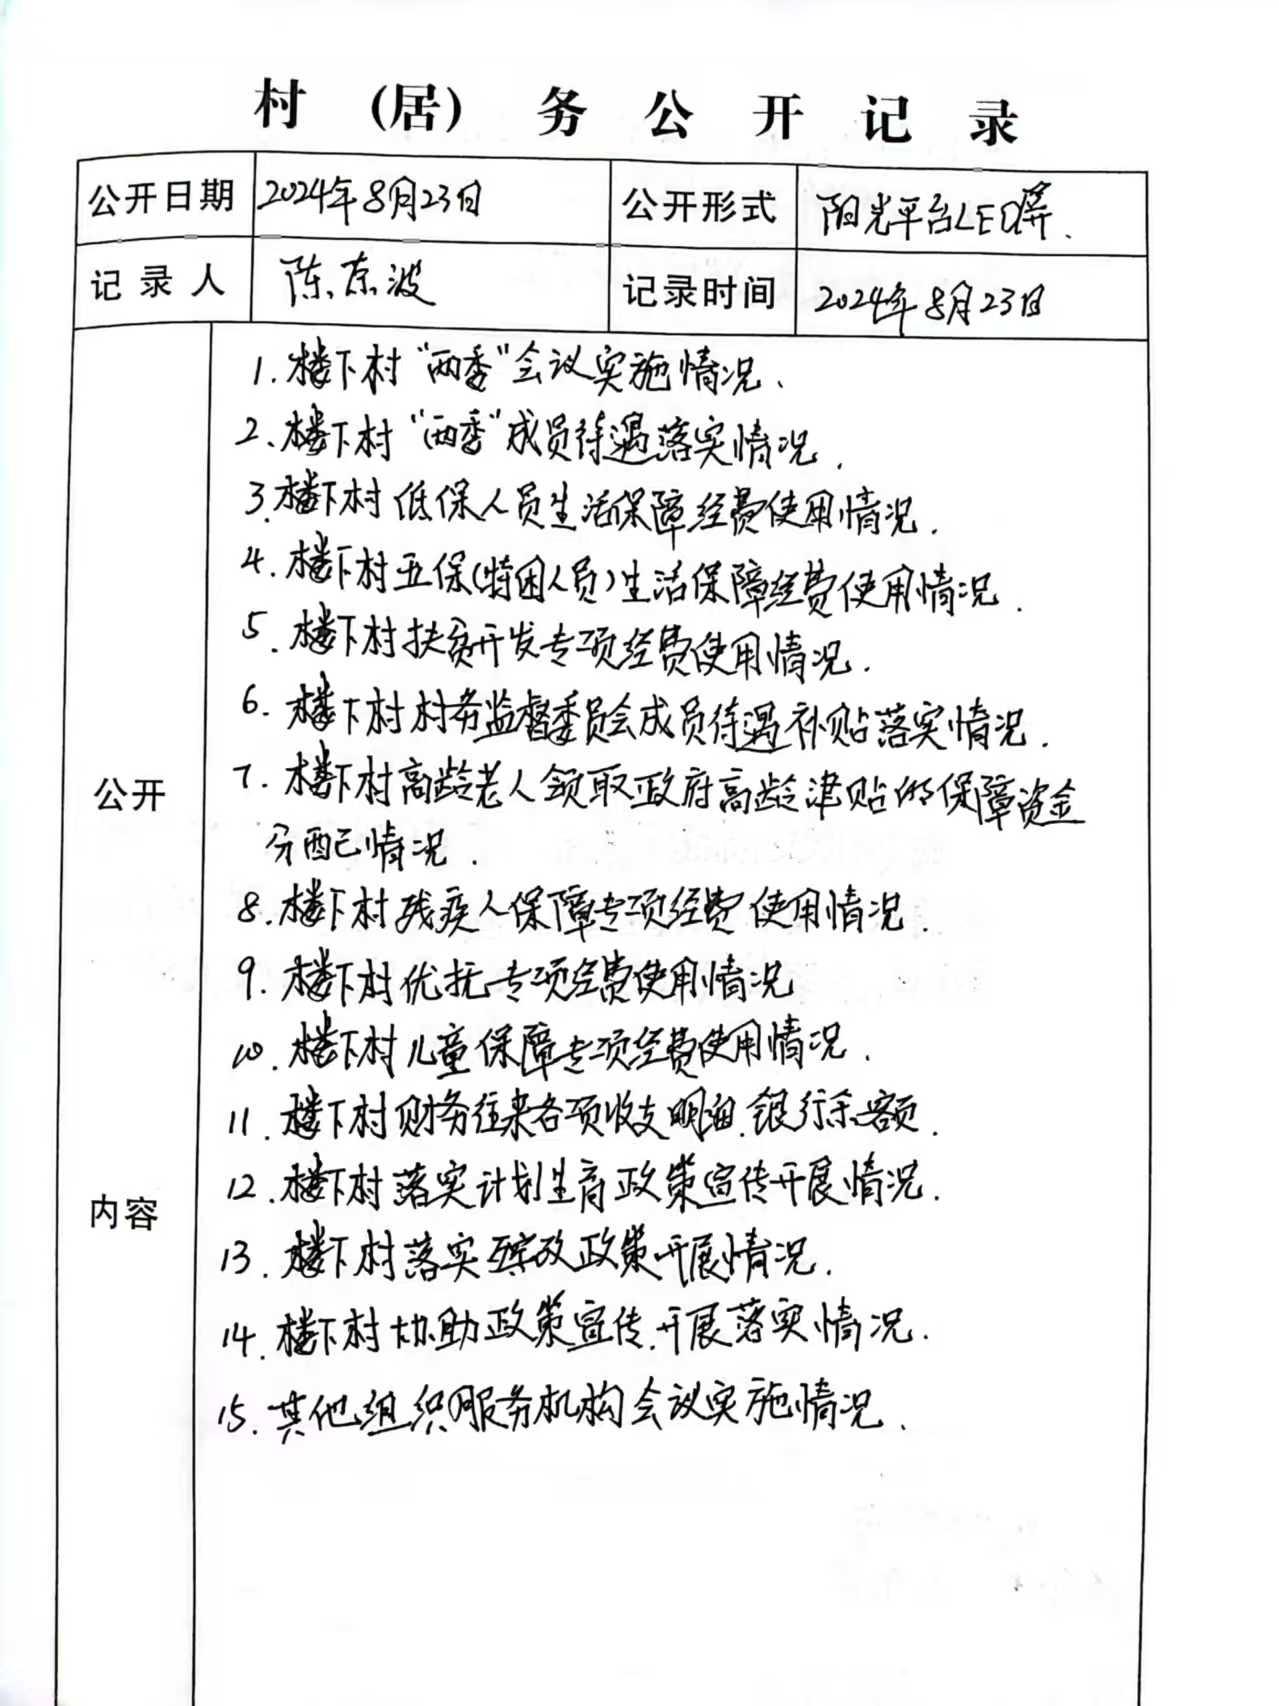 村（居）务公开记录
公开日期 2024年8月23日 公开形式 阳光平台LED屏.
记录人 陈东波 记录时间 2024年8月23日
公开
内容
1.楼下村"两委"会议实施情况.
2.楼下村"两委"成员待遇落实情况.
3.楼下村低保人员生活保障经费使用情况.
4.楼下村五保(特困人员)生活保障经费使用情况.
5.楼下村扶贫开发专项经费使用情况.
6.楼下村村务监督委员会成员待遇补贴落实情况.
7.楼下村高龄老人领取政府高龄津贴的保障资金
分配情况.
8.楼下村残疾人保障专项经费使用情况.
9.楼下村优抚专项经费使用情况
10.楼下村儿童保障专项经费使用情况.
11.楼下村财务往来各项收支明细.银行余额.
12.楼下村落实计划生育政策宣传开展情况.
13.楼下村落实殡改政策开展情况.
14.楼下村协助政策宣传.开展落实情况.
15.其他组织服务机构会议实施情况.